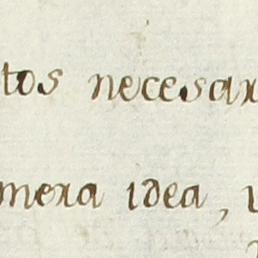 tos necesar
mera idea,